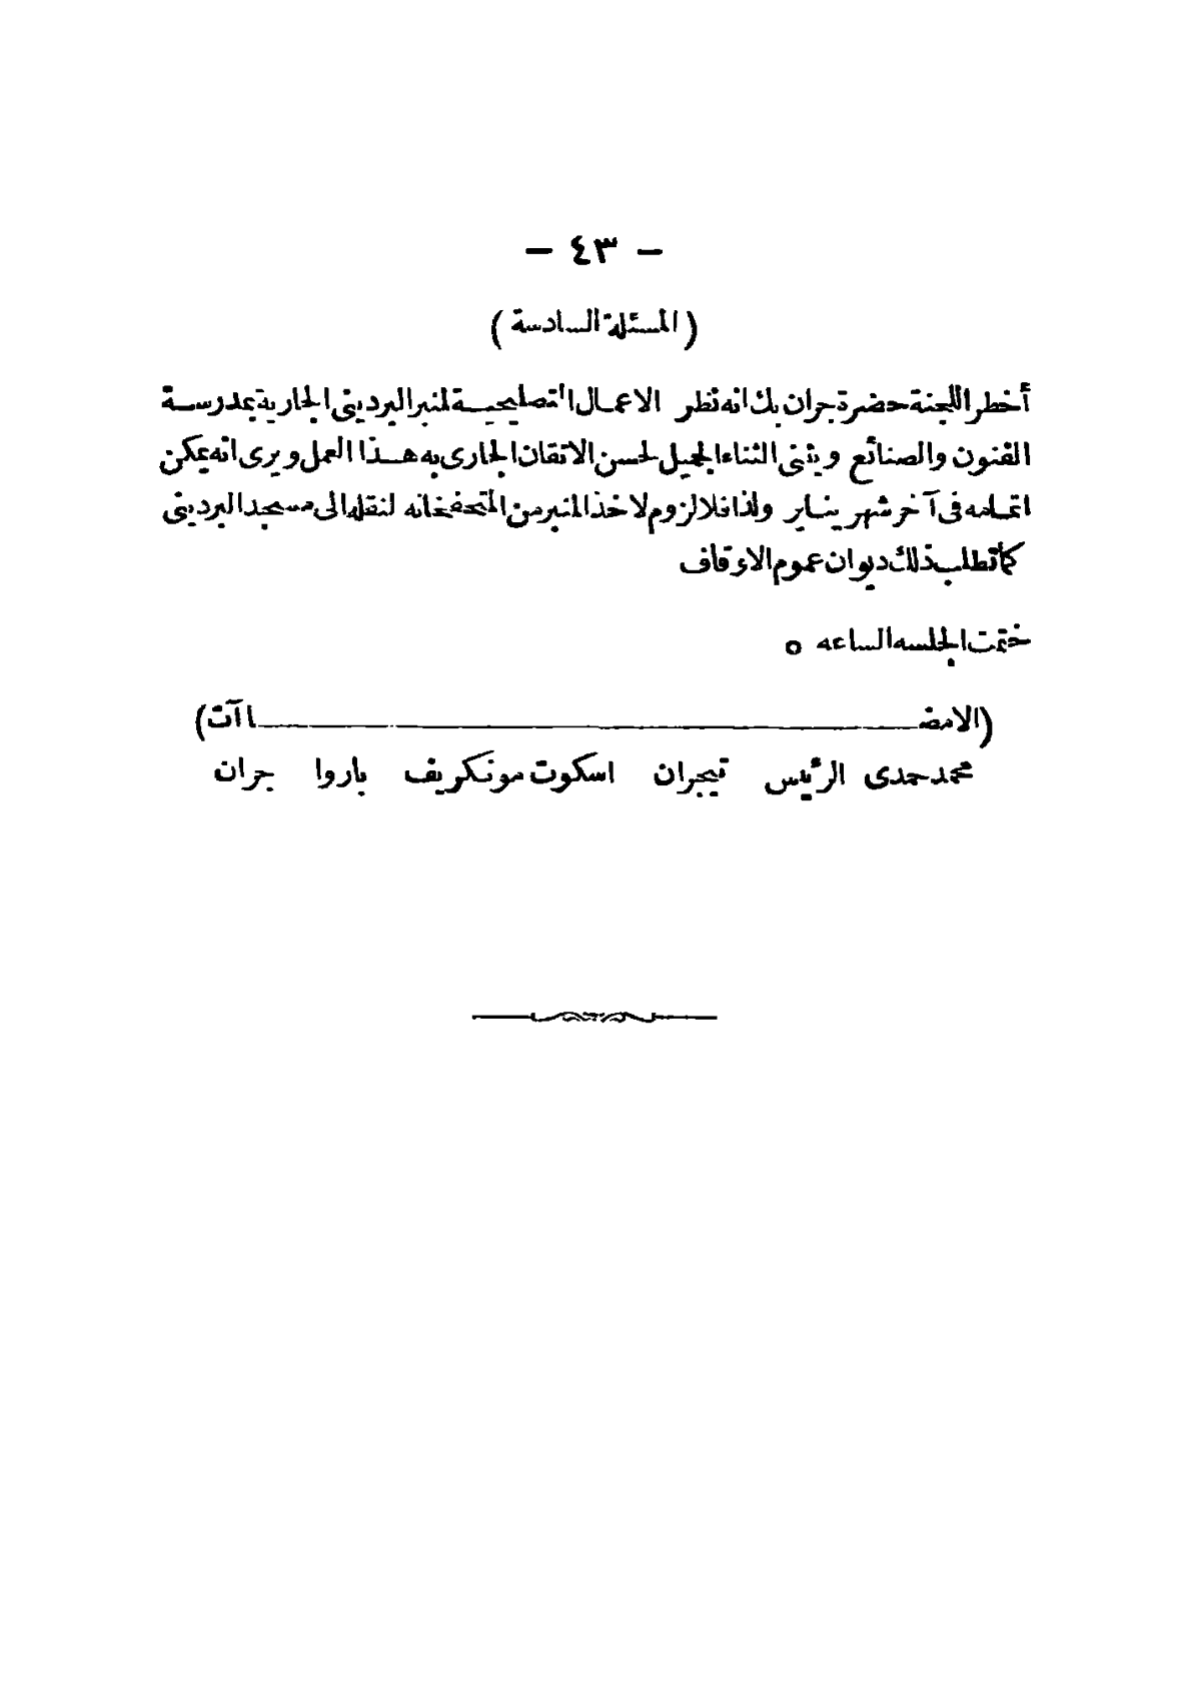 — ٤٣ —
(المسئلة السادسة)
أخطر اللجنة حضرة جران بك انه نظر الاعمال التصليحية لمنبر البرديني الجارية بمدرسة
الفنون والصنائع ويثنى الثناء الجميل لحسن الاتقان الجارى به هذا العمل ويرى انه يمكن
اتمامه فى آخر شهر يناير ولذا فلا لزوم لاخذ المنبر من المتحفخانه لنقله الى مسجد البرديني
كما تطلب ذلك ديوان عموم الاوقاف
ختمت الجلسه الساعه ٥
(الامضاآت)
محمد حمدى الرئيس تيجران اسكوت مونكريف باروا جران